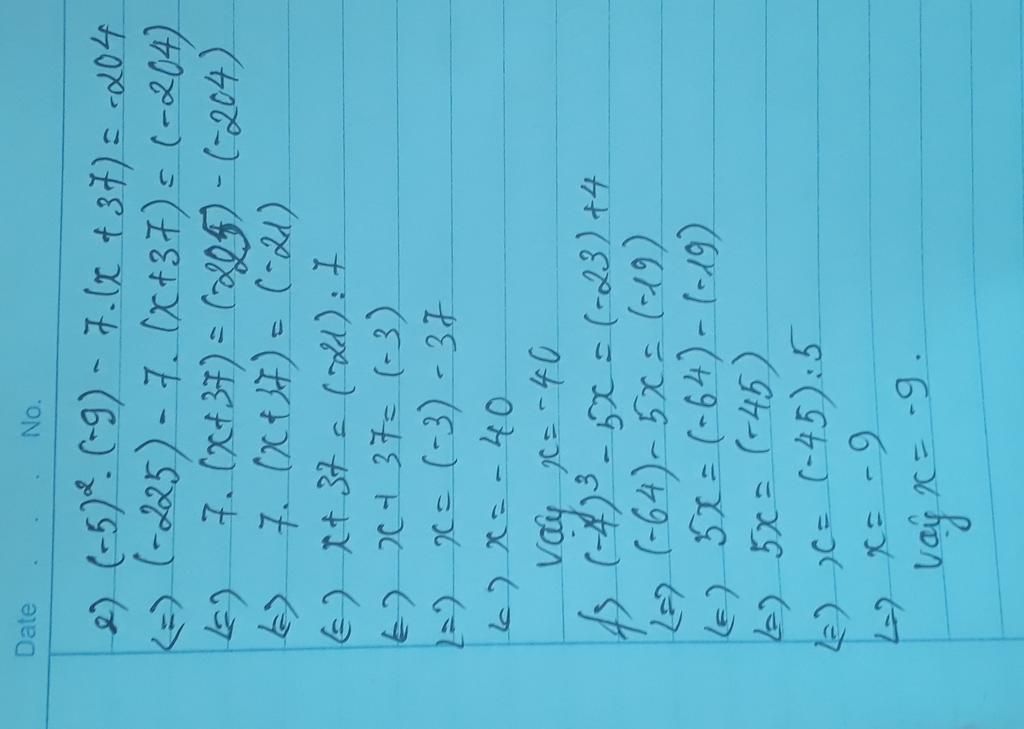 Date . . . No.
2) (-5)². (-9) - 7.(x + 37) = -204
(=) (-225) - 7. (x+37) = (-204)
(=) 7. (x+37) = (-225) - (-204)
(=) 7. (x+37) = (-21)
(=) x+37 = (-21) : 7
(=) x+37 = (-3)
(=) x = (-3) - 37
(=) x = -40
Vậy x = -40
f) (-4)³ - 5x = (-23)+4
(=) (-64) - 5x = (-19)
(=) 5x = (-64) - (-19)
(=) 5x = (-45)
(=) x = (-45):5
(=) x = -9
Vậy x = -9.